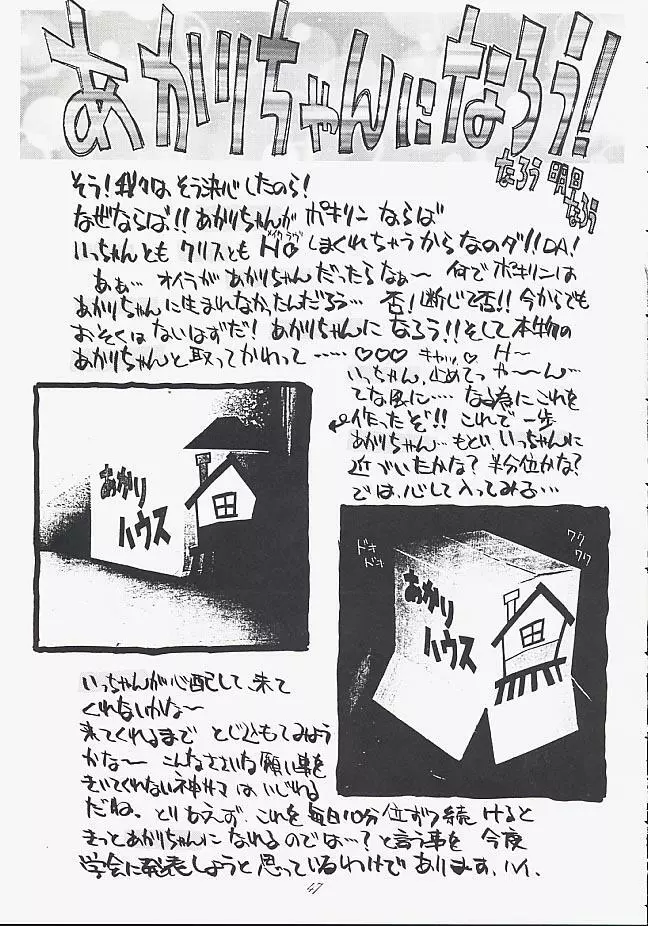 あかりちゃんになろう!
なろう 明日なろう
そう!我々は、そう決心したのら!
なぜならば!!あかりちゃんが ポキリン ならば
いっちゃんとも クリスとも しまくれちゃうからなのダ!!DA!
あぁ… オイラが あかりちゃん だったらなぁ〜 何で ポキリンは
あかりちゃんに生まれなかったんだろう… 否!断じて否!!今からでも
おそくはないはずだ! あかりちゃんに なろう!!そして本物の
あかりちゃんと取ってかわって …… ♡♡♡ キャッ♡ H〜
いっちゃん、止めてっ やーん…
てな風に… なる為にこれを
作ったぞ!! これで一歩
あかりちゃん… もといいっちゃんに
近づいたかな?半分位かな?
では、心して入ってみる…
あかり
ハウス
ドキ
ドキ
ワク
ワク
あかり
ハウス
いっちゃんが心配して、来て
くれないかな〜
来てくれるまで とじ込もってみよう
かな〜 こんなささいな願い事を
きいてくれない神サマは、いじわる
だね。 とりあえず、これを毎日10分位ずつ続けると
きっとあかりちゃんに なれるのでは…?と言う事を 今度
学会に発表しようと思っているわけであります、ハイ。
47